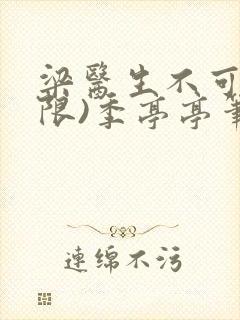 梁醫生不可
限)季亭亭筆
連綿不污